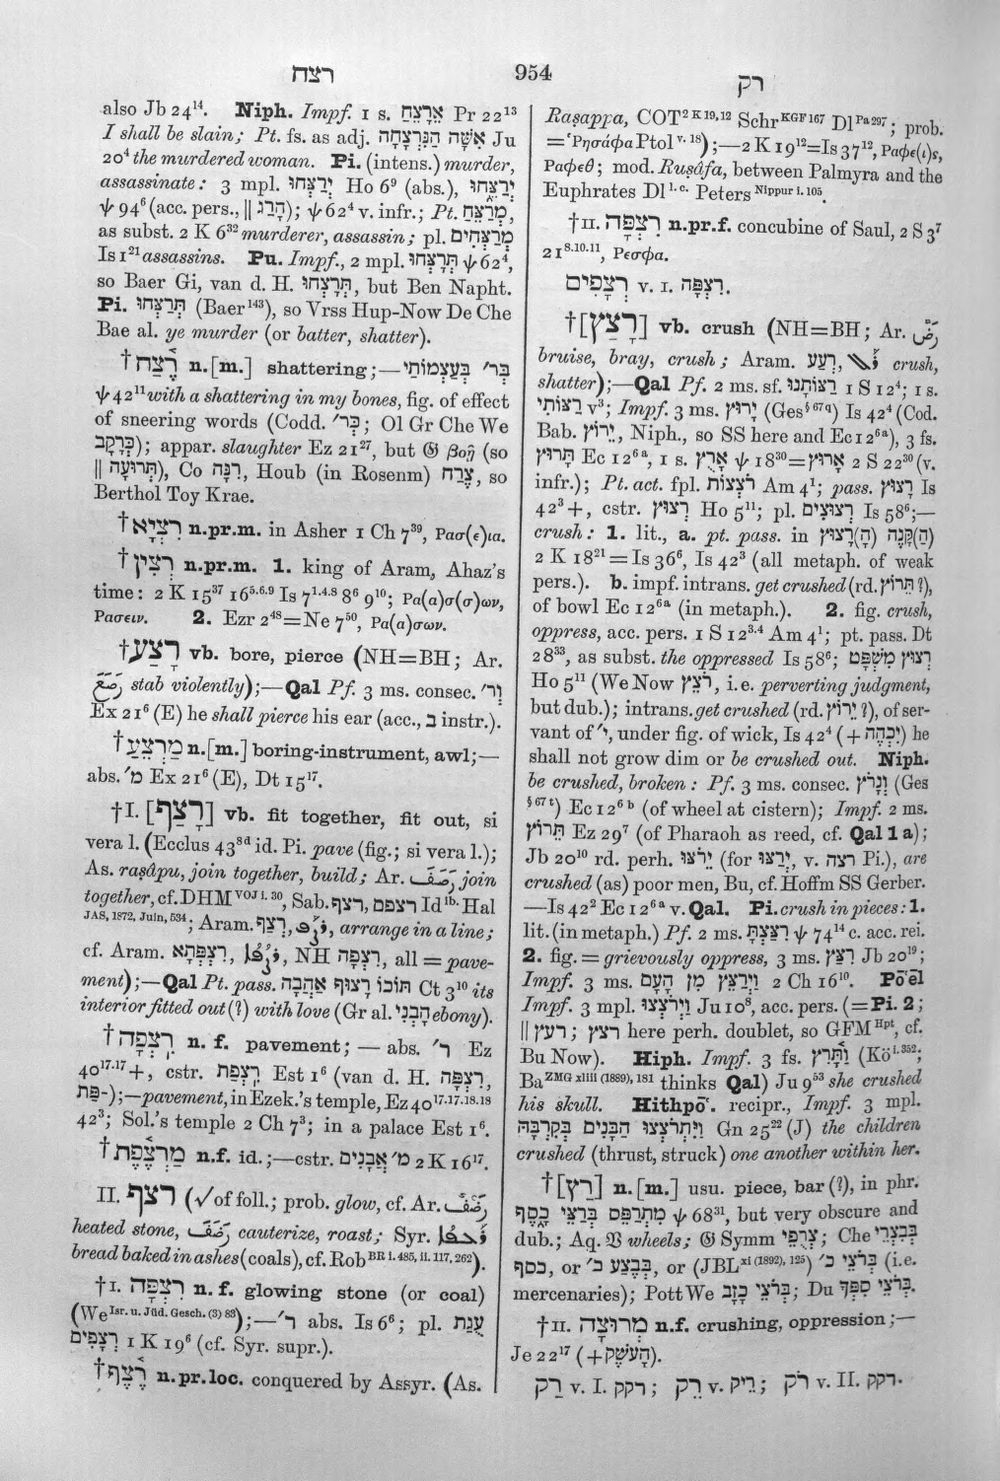 רצח
954
רק
also Jb 24¹⁴. Niph. Impf. 1 s. אֵרָצֵחַ Pr 22¹³
I shall be slain; Pt. fs. as adj. אִשָּׁה הַנִּרְצָחָה Ju
20⁴ the murdered woman. Pi. (intens.) murder,
assassinate: 3 mpl. יְרַצְּחוּ Ho 6⁹ (abs.), יְרַצֵּחוּ
ψ 94⁶ (acc. pers., || הָרַג); ψ 62⁴ v. infr.; Pt. מְרַצֵּחַ,
as subst. 2 K 6³² murderer, assassin; pl. מְרַצְּחִים
Is 1²¹ assassins. Pu. Impf., 2 mpl. תְּרָצְּחוּ ψ 62⁴,
so Baer Gi, van d. H. תְּרָצְחוּ, but Ben Napht.
Pi. תְּרַצְּחוּ (Baer¹⁴³), so Vrss Hup-Now De Che
Bae al. ye murder (or batter, shatter).
†רֶ֫צַח n.[m.] shattering;—בְּר׳ בְּעַצְמוֹתַי
ψ 42¹¹ with a shattering in my bones, fig. of effect
of sneering words (Codd. כְּר׳; Ol Gr Che We
כְּרָקָב); appar. slaughter Ez 21²⁷, but 𝔊 βοῇ (so
|| תְּרוּעָה), Co רִנָּה, Houb (in Rosenm) צֶרַח, so
Berthol Toy Krae.
†רִצְיָא n.pr.m. in Asher 1 Ch 7³⁹, Ρασ(ε)ια.
†רְצִין n.pr.m. 1. king of Aram, Ahaz's
time: 2 K 15³⁷ 16⁵·⁶·⁹ Is 7¹·⁴·⁸ 8⁶ 9¹⁰; Ρα(α)σ(σ)ων,
Ρασειν. 2. Ezr 2⁴⁸=Ne 7⁵⁰, Ρα(α)σων.
†רָצַע vb. bore, pierce (NH=BH; Ar.
رَصَعَ stab violently);—Qal Pf. 3 ms. consec. וְר׳
Ex 21⁶ (E) he shall pierce his ear (acc., ב instr.).
†מַרְצֵעַ n.[m.] boring-instrument, awl;—
abs. מ׳ Ex 21⁶ (E), Dt 15¹⁷.
†I. [רָצַף] vb. fit together, fit out, si
vera l. (Ecclus 43⁸ᵈ id. Pi. pave (fig.; si vera l.);
As. raṣâpu, join together, build; Ar. رَصَفَ join
together, cf. DHM VOJ i. 30, Sab. רצף, רצפם Id ib. Hal
JAS, 1872, Juin, 534; Aram. רְצַף, ܪܨܦ, arrange in a line;
cf. Aram. רִצְפְּתָא, ܪܨܦܬܐ, NH רִצְפָּה, all = pave-
ment);—Qal Pt. pass. תּוֹכוֹ רָצוּף אַהֲבָה Ct 3¹⁰ its
interior fitted out (?) with love (Gr al. הָבְנִי ebony).
†רִֽצְפָה n. f. pavement; — abs. ר׳ Ez
40¹⁷·¹⁷+, cstr. רִֽצְפַת Est 1⁶ (van d. H. רִצְפָּה,
־פַּת);—pavement, in Ezek.'s temple, Ez 40¹⁷·¹⁷·¹⁸·¹⁸
42³; Sol.'s temple 2 Ch 7³; in a palace Est 1⁶.
†מַרְצֶ֫פֶת n.f. id.;—cstr. מ׳ אֲבָנִים 2 K 16¹⁷.
II. רצף (√ of foll.; prob. glow, cf. Ar. رَضْفٌ
heated stone, رَضَفَ cauterize, roast; Syr.
bread baked in ashes (coals), cf. Rob BR i. 485, ii. 117, 262).
†I. רִצְפָּה n. f. glowing stone (or coal)
(We Isr. u. Jüd. Gesch. (3) 83);—ר׳ abs. Is 6⁶; pl. עֻגַת
רְצָפִים 1 K 19⁶ (cf. Syr. supr.).
†רֶ֫צֶף n.pr.loc. conquered by Assyr. (As.
Raṣappa, COT² K 19, 12 Schr KGF 167 Dl Pa 297; prob.
= Ῥησάφα Ptol v. 18);—2 K 19¹²=Is 37¹², Ραφε(ι)ς,
Ραφεθ; mod. Ruṣâfa, between Palmyra and the
Euphrates Dl l. c. Peters Nippur i. 105.
†II. רִצְפָּה n.pr.f. concubine of Saul, 2 S 3⁷
21⁸·¹⁰·¹¹, Ρεσφα.
רְצָפִים v. I. רִצְפָּה.
†[רָצַץ] vb. crush (NH=BH; Ar. رَضَّ
bruise, bray, crush; Aram. רְעַע, ܪܥ crush,
shatter);—Qal Pf. 2 ms. sf. רַצּוֹתָנוּ 1 S 12⁴; 1 s.
רַצּוֹתִי v³; Impf. 3 ms. יָרוּץ (Ges § 67 q) Is 42⁴ (Cod.
Bab. יֵרוֹץ, Niph., so SS here and Ec 12⁶ᵃ), 3 fs.
תָּרוּץ Ec 12⁶ᵃ, 1 s. אָרֻץ ψ 18³⁰=אָרוּץ 2 S 22³⁰ (v.
infr.); Pt. act. fpl. רֹצְצוֹת Am 4¹; pass. רָצוּץ Is
42³+, cstr. רְצוּץ Ho 5¹¹; pl. רְצוּצִים Is 58⁶;—
crush: 1. lit., a. pt. pass. in (הַ)קָּנֶה (הָ)רָצוּץ
2 K 18²¹=Is 36⁶, Is 42³ (all metaph. of weak
pers.). b. impf. intrans. get crushed (rd. תֵּרוֹץ?),
of bowl Ec 12⁶ᵃ (in metaph.). 2. fig. crush,
oppress, acc. pers. 1 S 12³·⁴ Am 4¹; pt. pass. Dt
28³³, as subst. the oppressed Is 58⁶; רְצוּץ מִשְׁפָּט
Ho 5¹¹ (We Now רֹצֵץ, i.e. perverting judgment,
but dub.); intrans. get crushed (rd. יֵרוֹץ?), of ser-
vant of י׳, under fig. of wick, Is 42⁴ (+יִכְהֶה) he
shall not grow dim or be crushed out. Niph.
be crushed, broken: Pf. 3 ms. consec. וְנָרֹץ (Ges
§ 67 t) Ec 12⁶ᵇ (of wheel at cistern); Impf. 2 ms.
תֵּרוֹץ Ez 29⁷ (of Pharaoh as reed, cf. Qal 1 a);
Jb 20¹⁰ rd. perh. יֵרֹצּוּ (for יְרַצּוּ, v. רצה Pi.), are
crushed (as) poor men, Bu, cf. Hoffm SS Gerber.
—Is 42² Ec 12⁶ᵃ v. Qal. Pi. crush in pieces: 1.
lit. (in metaph.) Pf. 2 ms. רִצַּצְתָּ ψ 74¹⁴ c. acc. rei.
2. fig. = grievously oppress, 3 ms. רִצַּץ Jb 20¹⁹;
Impf. 3 ms. וַיְרַצֵּץ מִן הָעָם 2 Ch 16¹⁰. Pōʻēl
Impf. 3 mpl. וַיְרֹצְצוּ Ju 10⁸, acc. pers. (=Pi. 2;
|| רעץ; רצץ here perh. doublet, so GFM Hpt, cf.
Bu Now). Hiph. Impf. 3 fs. וַתָּרִץ (Kö I. 352;
Ba ZMG xliii (1889), 181 thinks Qal) Ju 9⁵³ she crushed
his skull. Hithpōʻ. recipr., Impf. 3 mpl.
וַיִּתְרֹצְצוּ הַבָּנִים בְּקִרְבָּהּ Gn 25²² (J) the children
crushed (thrust, struck) one another within her.
†[רַץ] n. [m.] usu. piece, bar (?), in phr.
מִתְרַפֵּס בְּרַצֵּי כָסֶף ψ 68³¹, but very obscure and
dub.; Aq. 𝔙 wheels; 𝔊 Symm צְרֻפֵי; Che בְּבָצְרֵי
כסף, or בְּבֶצַע כ׳, or (JBL xi (1892), 125) בְּרֹצֵי כ׳ (i.e.
mercenaries); Pott We בְּרֹצֵי כָזָב; Du בְּרֹצֵי סַפֶּךָ.
†II. מְרוּצָה n.f. crushing, oppression;—
Je 22¹⁷ (+הָעֹשֶׁק).
רַק v. I. רקק; רֵק v. רֵיק; רֹק v. II. רקק.